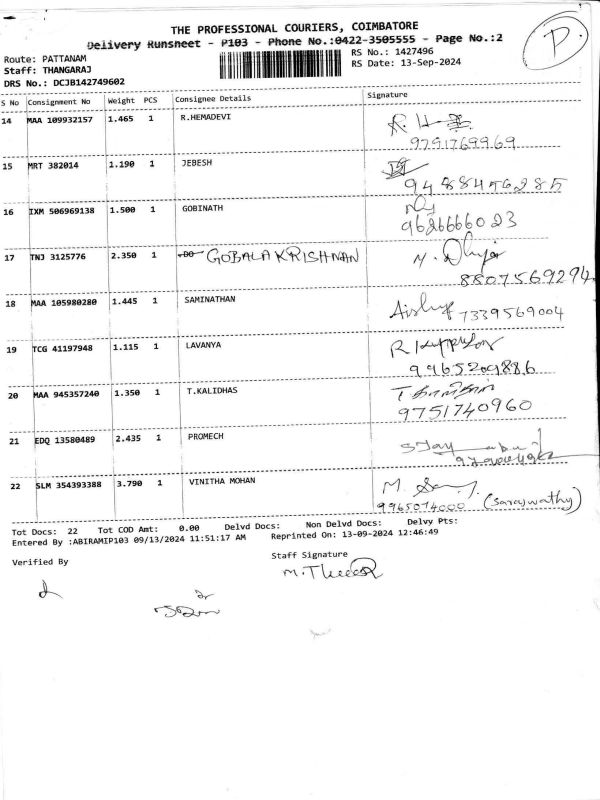 THE PROFESSIONAL COURIERS, COIMBATORE
Delivery Runsheet - P103 - Phone No.:0422-3505555 - Page No.:2
P.
Route: PATTANAM
RS No.: 1427496
Staff: THANGARAJ
RS Date: 13-Sep-2024
DRS No.: DCJB142749602
S No Consignment No Weight PCS Consignee Details Signature
14 MAA 109932157 1.465 1 R.HEMADEVI
9751769969
15 MRT 382014 1.190 1 JEBESH
9488456285
16 IXM 506969138 1.500 1 GOBINATH
9626666023
17 TNJ 3125776 2.350 1 -DO- GOBALAKRISHNAN
8807569294
18 MAA 105980280 1.445 1 SAMINATHAN
7339569004
19 TCG 41197948 1.115 1 LAVANYA
9965209886
20 MAA 945357240 1.350 1 T.KALIDHAS
9751740960
21 EDQ 13580489 2.435 1 PROMECH
22 SLM 354393388 3.790 1 VINITHA MOHAN
9965074000 (Saraswathy)
Tot Docs: 22 Tot COD Amt: 0.00 Delvd Docs: Non Delvd Docs: Delvy Pts:
Entered By :ABIRAMIP103 09/13/2024 11:51:17 AM Reprinted On: 13-09-2024 12:46:49
Verified By
Staff Signature